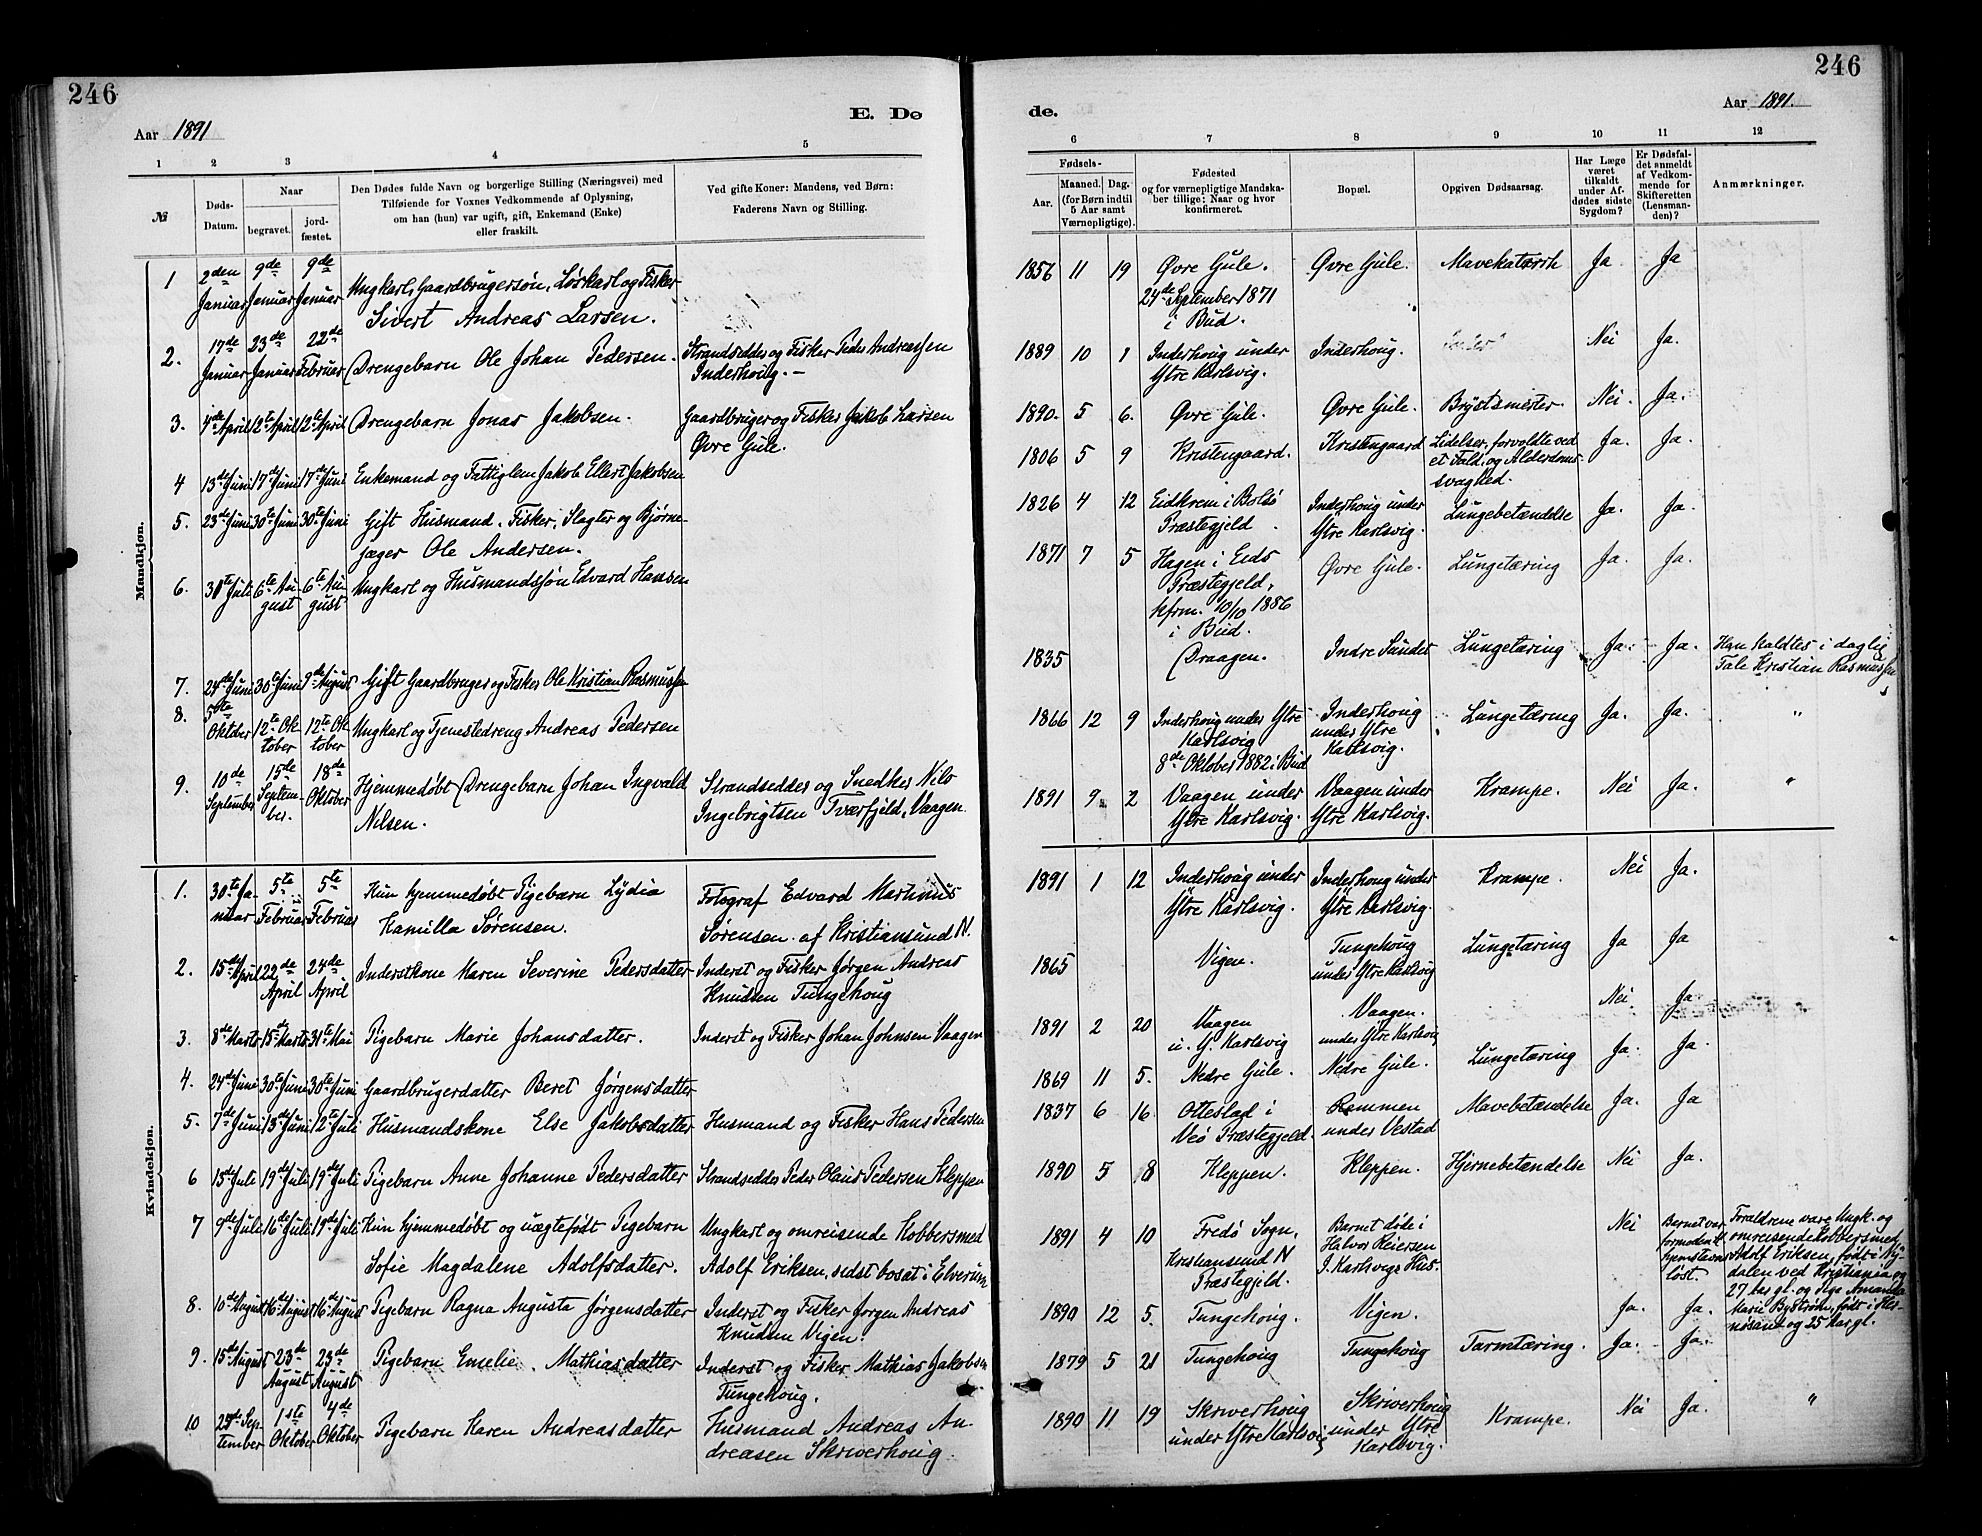 246
Aar 1891
E. Dø
1 2 3 4 5
№
Døds-Datum.
Naar
begravet.
jord-fæstet.
Den Dødes fulde Navn og borgerlige Stilling (Næringsvei) med
Tilføiende for Voxnes Vedkommende af Oplysning,
om han (hun) var ugift, gift, Enkemand (Enke)
eller fraskilt.
Ved gifte Koner: Mandens, ved Børn:
Faderens Navn og Stilling.
Mandkjøn.
1 2den Januar 9de Januar 9de Januar Ungkarl, Gaardbrugersøn, Løskarl og Fisker
Sivert Andreas Larsen.
2. 17de Januar 23de Januar 22de Februar Drengebarn Ole Johan Pedersen. Strandsedder og Fisker Peder Andreassen
Inderhoug. –
3. 4de April 12te April 12te April Drengebarn Jonas Jakobsen. Gaardbruger og Fisker Jakob Larsen
Øvre Gule.
4 13de Juni 17de Juni 17de Juni Enkemand og Fattiglem Jakob Ellert Jakobsen
5. 23de Juni 30te Juni 30te Juni Gift Husmand, Fisker, Slagter og Bjørne-
jæger Ole Andersen.
6. 30te Juli 6te August 6te August Ungkarl og Husmandssøn Edvard Hansen
7. 24de Juni 30te Juni 9de August Gift Gaardbruger og Fisker Ole Kristian Rasmussen
8. 5te Oktober 12te Oktober 12te Oktober Ungkarl og Tjenestedreng Andreas Pedersen
9. 10de September 15de September. 18de Oktober Hjemmedøbt Drengebarn Johan Ingvald Strandsedder og Snedker Nils
Nilsen. Ingebrigtsen Tværfjeld, Vaagen.
Kvindekjøn.
1. 30te Januar 5te Februar 5te Februar Kun hjemmedøbt Pigebarn Lydia Fotograf Edvard Martinus
Kamilla Sørensen. Sørensen af Kristiansund N.
2. 15de April 22de April 24de April Inderstkone Maren Severine Pedersdatter Inderst og Fisker Jørgen Andreas
Knudsen Tungehoug
3. 8de Marts 15de Marts 31te Mai Pigebarn Marie Johansdatter. Inderst og Fisker Johan Johnsen Vaagen
4. 24de Juni 30te Juni 30te Juni Gaardbrugerdatter Beret Jørgensdatter
5. 7de Juni 13de Juni 12te Juli Husmandskone Else Jakobsdatter Husmand og Fisker Hans Pedersen
6 15de Juli 19de Juli 19de Juli Pigebarn Anne Johanne Pedersdatter Strandsedder Peder Olaus Pedersen Kleppen
7 9de Juli 16de Juli 19de Juli Kun hjemmedøbt og uægtefødt Pigebarn Ungkarl og omreisende Kobbersmed
Sofie Magdalene Adolfsdatter. Adolf Eriksen, sidst bosat i Elverum
8. 10de August 16de August 16de August Pigebarn Ragna Augusta Jørgensdatter Inderst og Fisker Jørgen Andreas
Knudsen Vigen.
9. 15de August 23de August 23de August Pigebarn Emelie Mathiasdatter Inderst og Fisker Mathias Jakobsen
Tungehoug.
10 September 1ste Oktober 4de Oktober Pigebarn Karen Andreasdatter Husmand Andreas An-
dreasen Skriverhoug
246
de.
Aar 1891.
6 7 8 9 10 11 12
Fødsels-
Aar.
Maaned. Dag.
(for Børn indtil
5 Aar samt
Værnepligtige).
Fødested
og for værnepligtige Mandska-
ber tillige: Naar og hvor
konfirmeret.
Bopæl.
Opgiven Dødsaarsag.
Har Læge
været
tilkaldt
under Af-
dødes sidste
Sygdom?
Er Dødsfal-
det anmeldt
af Vedkom-
mende for
Skifteretten
(Lensman-
den)?
Anmærkninger.
1856 11 19 Øvre Gule. Øvre Gule. Mavekatarrh Ja Ja
24de September 1871
i Bud.
1889 10 1 Inderhoug under Inderhoug. Nei Ja.
Ytre Karlsvig.
1890. 5 6. Øvre Gule. Øvre Gule. Brystsmerter. Nei. Ja.
1806 5 9 Kristengaard. Kristengaard Lidelser, forvoldte ved Ja. Ja
et Fald og Alderdoms-
svaghed.
1826 4 12 Eidkrem i Bolsø Inderhoug under Lungebetændelse Ja. Ja.
Præstegjeld Ytre Karlsvig.
1871 7 5 Hagen i Eids Øvre Gule. Lungetæring Ja. Ja.
Præstegjeld,
kfrm. 10/10 1886
i Bud.
1835 Draagen. Indre Sunde Lungetæring Ja. Ja. Han kaldtes i daglig
Tale Kristian Rasmussen
1866 12 9 Inderhoug under Ytre Inderhoug Lungetæring Ja. Ja. "
Karlsvig under Ytre
8de Oktober 1882 i Bud Karlsvig.
1891 9. 2 Vaagen under Vaagen under Krampe. Nei Ja. "
Ytre Karlsvig. Ytre Karlsvig.
1891 1 12 Inderhoug under Inderhoug under Krampe. Nei Ja.
Ytre Karlsvig. Ytre Karlsvig.
1865 Vigen. Tungehoug Lungetæring Ja Ja
under Ytre Karlsvig
1891 2 20 Vaagen Vaagen. Nei Ja
u. Y. Karlsvig under Ytre Karlsvig
1869 11 5. Nedre Gule. Nedre Gule. Lungetæring Ja. Ja.
1837 6 16. Otteslad i Rommen Mavebetændelse Ja. Ja
Veø Præstegjeld. under Vestad
1890 5 8 Kleppen. Kleppen. Hjernebetændelse Nei Ja.
1891 4 10 Fredø Sogn, Barnet døde i Nei Barnet var
Kristiansund N Halvor Reiersen formodentl.
Præstegjeld. I. Karlsvigs Hus.
løst.
Forældrene vare Ungk. og
omreisende Kobbersmed
Adolf Eriksen, født i Ny-
dalen ved Kristiania og
27 Aar gl. og Olga Amanda
Marie Byström, født i Her-
nösand og 25 Aar gl.
1890 12 5. Tungehoug. Vigen. Ja. Ja.
1879 5 21 Tungehoug Tungehoug Tarmtæring. Ja. Ja.
1890 11 19 Skriverhoug Skriverhoug Krampe. Nei Ja. "
under Ytre Karlsvig under Ytre
Karlsvig.